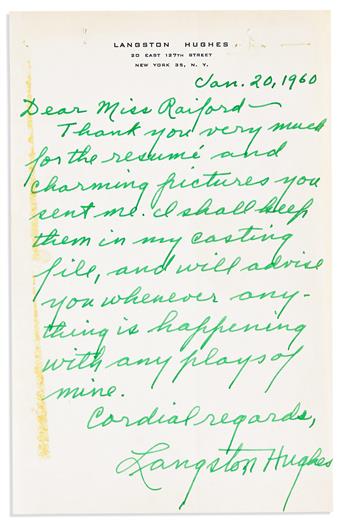 LANGSTON HUGHES
20 EAST 127TH STREET
NEW YORK 35, N. Y.
Jan. 20, 1960
Dear Miss Raiford—
Thank you very much
for the resumé and
charming pictures you
sent me. I shall keep
them in my casting
file, and will advise
you whenever any-
thing is happening
with any plays of
mine.
Cordial regards,
Langston Hughes